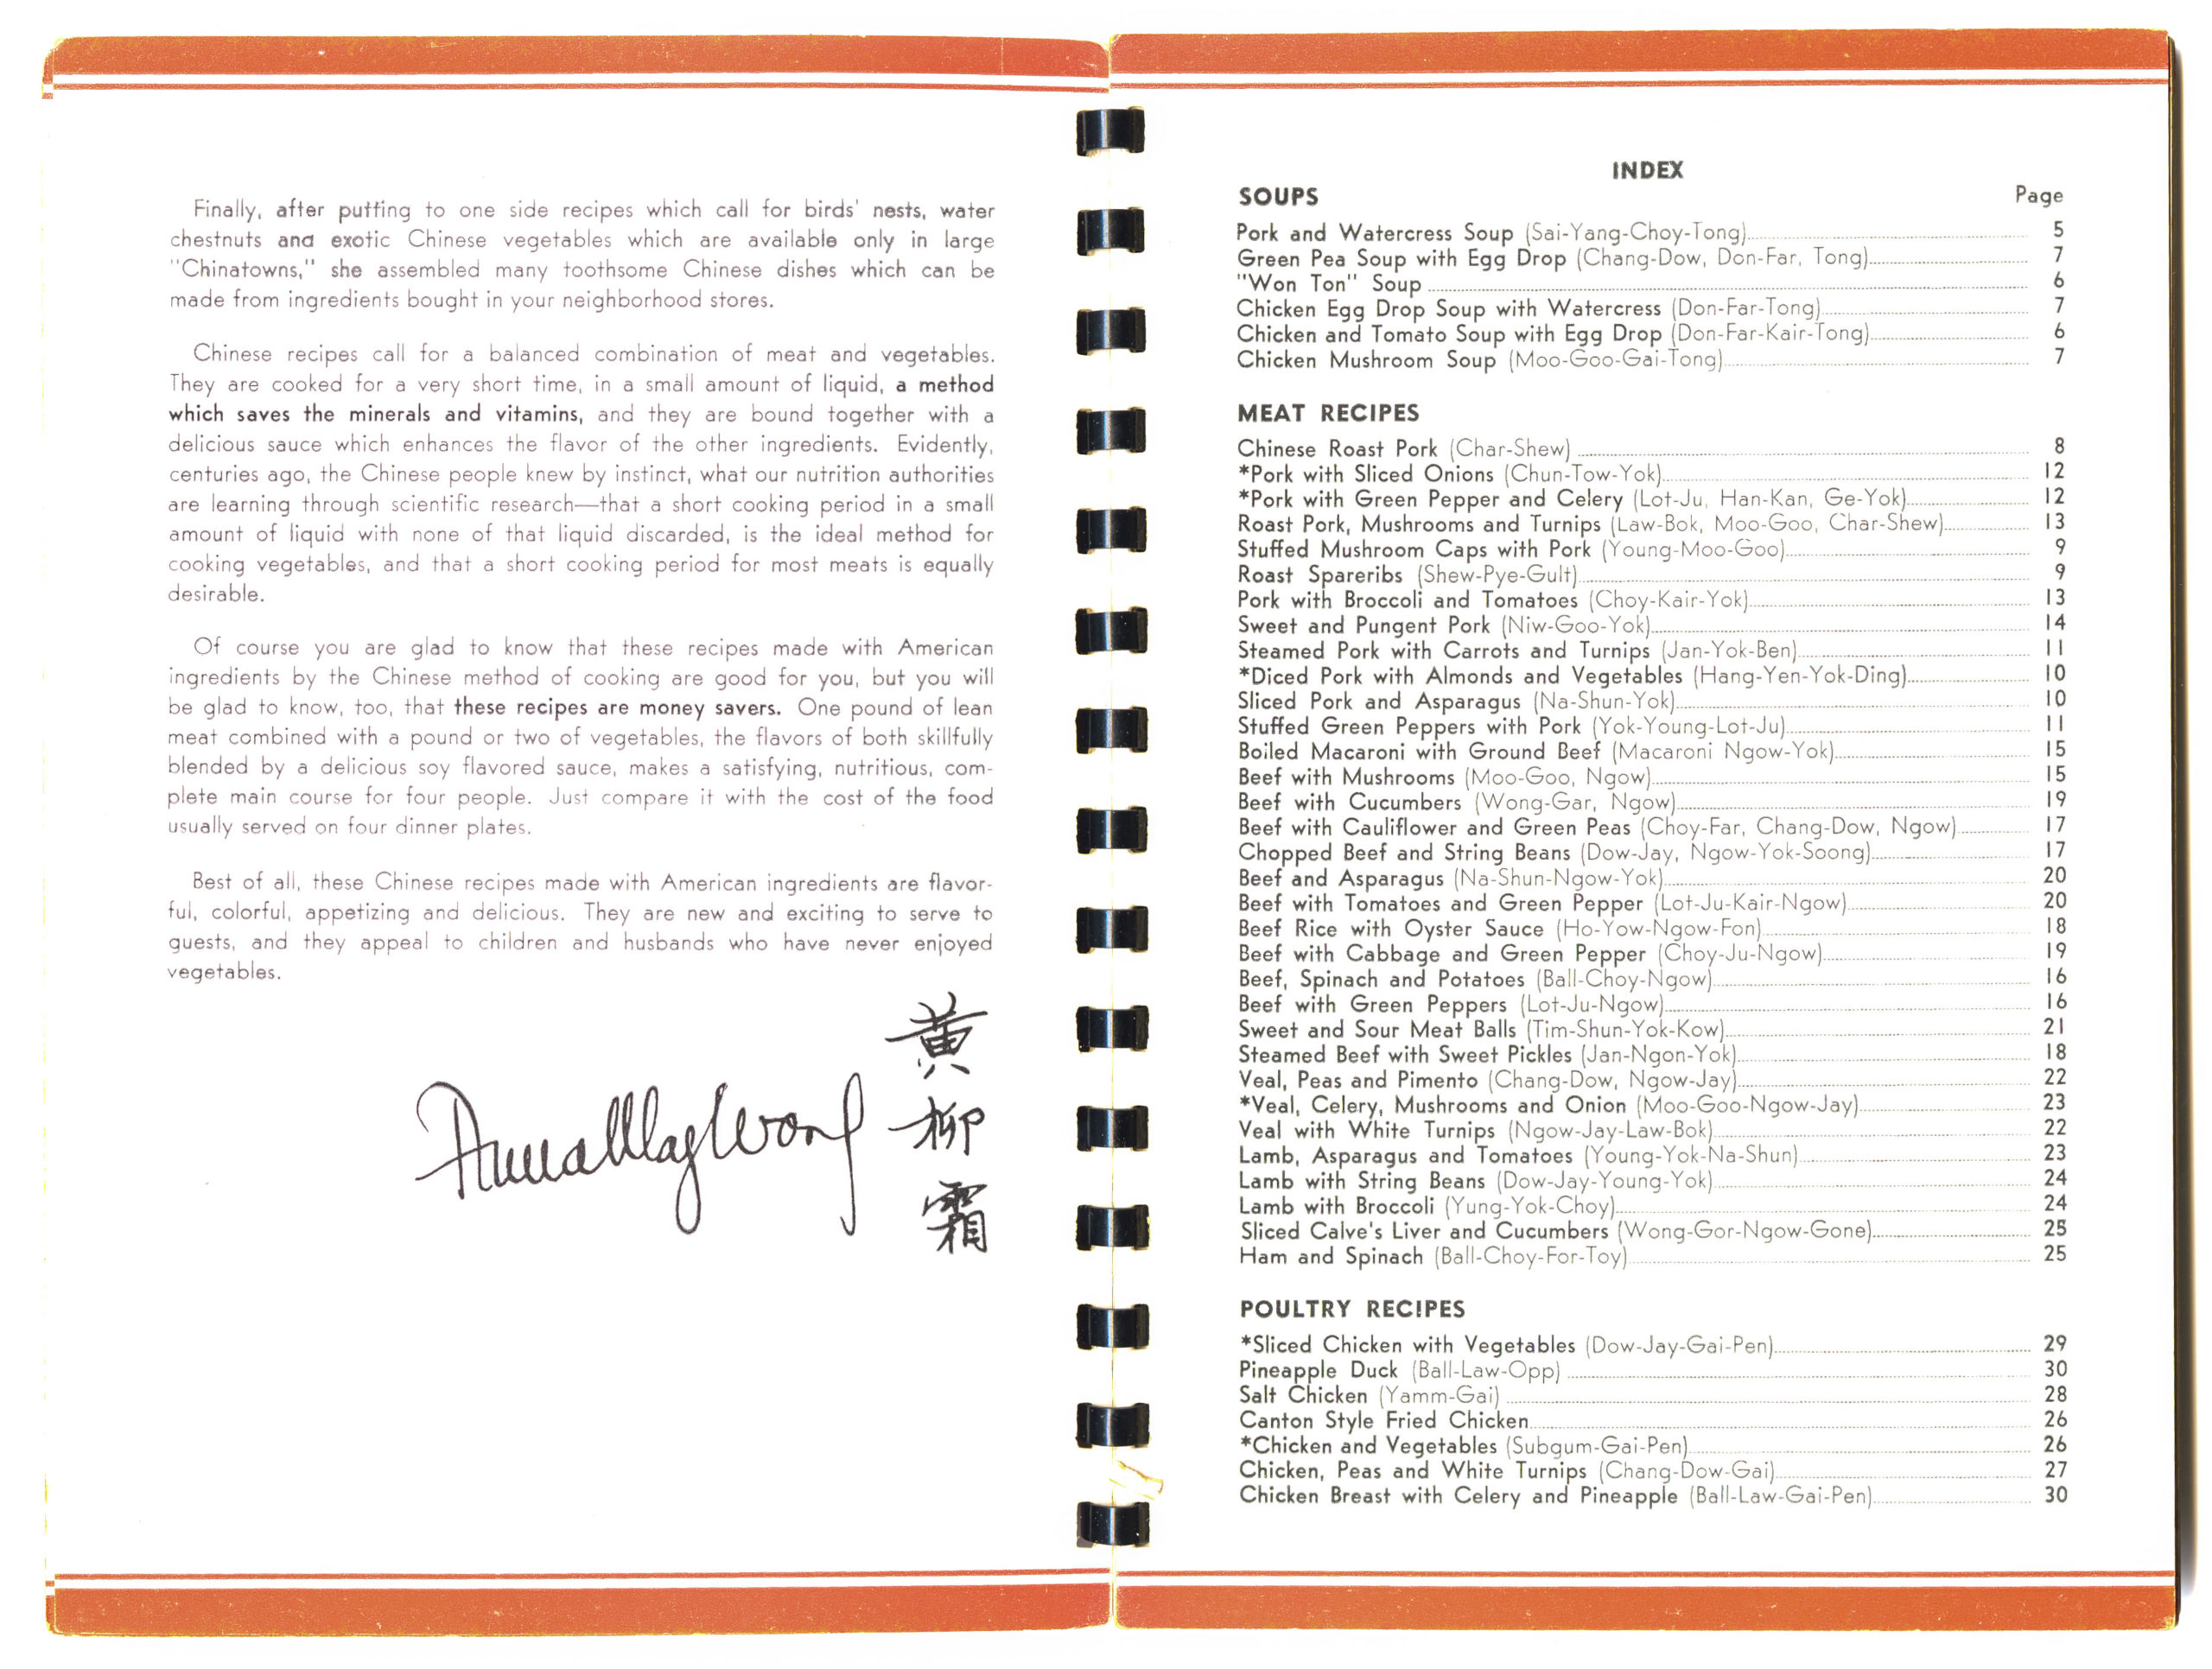 Finally, after putting to one side recipes which call for birds' nests, water
chestnuts and exotic Chinese vegetables which are available only in large
"Chinatowns," she assembled many toothsome Chinese dishes which can be
made from ingredients bought in your neighborhood stores.
Chinese recipes call for a balanced combination of meat and vegetables.
They are cooked for a very short time, in a small amount of liquid, a method
which saves the minerals and vitamins, and they are bound together with a
delicious sauce which enhances the flavor of the other ingredients. Evidently,
centuries ago, the Chinese people knew by instinct, what our nutrition authorities
are learning through scientific research—that a short cooking period in a small
amount of liquid with none of that liquid discarded, is the ideal method for
cooking vegetables, and that a short cooking period for most meats is equally
desirable.
Of course you are glad to know that these recipes made with American
ingredients by the Chinese method of cooking are good for you, but you will
be glad to know, too, that these recipes are money savers. One pound of lean
meat combined with a pound or two of vegetables, the flavors of both skillfully
blended by a delicious soy flavored sauce, makes a satisfying, nutritious, com-
plete main course for four people. Just compare it with the cost of the food
usually served on four dinner plates.
Best of all, these Chinese recipes made with American ingredients are flavor-
ful, colorful, appetizing and delicious. They are new and exciting to serve to
guests, and they appeal to children and husbands who have never enjoyed
vegetables.
Anna May Wong
黄柳霜
INDEX
SOUPS Page
Pork and Watercress Soup (Sai-Yang-Choy-Tong) 5
Green Pea Soup with Egg Drop (Chang-Dow, Don-Far, Tong) 7
"Won Ton" Soup 6
Chicken Egg Drop Soup with Watercress (Don-Far-Tong) 7
Chicken and Tomato Soup with Egg Drop (Don-Far-Kair-Tong) 6
Chicken Mushroom Soup (Moo-Goo-Gai-Tong) 7
MEAT RECIPES
Chinese Roast Pork (Char-Shew) 8
*Pork with Sliced Onions (Chun-Tow-Yok) 12
*Pork with Green Pepper and Celery (Lot-Ju, Han-Kan, Ge-Yok) 12
Roast Pork, Mushrooms and Turnips (Law-Bok, Moo-Goo, Char-Shew) 13
Stuffed Mushroom Caps with Pork (Young-Moo-Goo) 9
Roast Spareribs (Shew-Pye-Gult) 9
Pork with Broccoli and Tomatoes (Choy-Kair-Yok) 13
Sweet and Pungent Pork (Niw-Goo-Yok) 14
Steamed Pork with Carrots and Turnips (Jan-Yok-Ben) 11
*Diced Pork with Almonds and Vegetables (Hang-Yen-Yok-Ding) 10
Sliced Pork and Asparagus (Na-Shun-Yok) 10
Stuffed Green Peppers with Pork (Yok-Young-Lot-Ju) 11
Boiled Macaroni with Ground Beef (Macaroni Ngow-Yok) 15
Beef with Mushrooms (Moo-Goo, Ngow) 15
Beef with Cucumbers (Wong-Gar, Ngow) 19
Beef with Cauliflower and Green Peas (Choy-Far, Chang-Dow, Ngow) 17
Chopped Beef and String Beans (Dow-Jay, Ngow-Yok-Soong) 17
Beef and Asparagus (Na-Shun-Ngow-Yok) 20
Beef with Tomatoes and Green Pepper (Lot-Ju-Kair-Ngow) 20
Beef Rice with Oyster Sauce (Ho-Yow-Ngow-Fon) 18
Beef with Cabbage and Green Pepper (Choy-Ju-Ngow) 19
Beef, Spinach and Potatoes (Ball-Choy-Ngow) 16
Beef with Green Peppers (Lot-Ju-Ngow) 16
Sweet and Sour Meat Balls (Tim-Shun-Yok-Kow) 21
Steamed Beef with Sweet Pickles (Jan-Ngon-Yok) 18
Veal, Peas and Pimento (Chang-Dow, Ngow-Jay) 22
*Veal, Celery, Mushrooms and Onion (Moo-Goo-Ngow-Jay) 23
Veal with White Turnips (Ngow-Jay-Law-Bok) 22
Lamb, Asparagus and Tomatoes (Young-Yok-Na-Shun) 23
Lamb with String Beans (Dow-Jay-Young-Yok) 24
Lamb with Broccoli (Yung-Yok-Choy) 24
Sliced Calve's Liver and Cucumbers (Wong-Gor-Ngow-Gone) 25
Ham and Spinach (Ball-Choy-For-Toy) 25
POULTRY RECIPES
*Sliced Chicken with Vegetables (Dow-Jay-Gai-Pen) 29
Pineapple Duck (Ball-Law-Opp) 30
Salt Chicken (Yamm-Gai) 28
Canton Style Fried Chicken 26
*Chicken and Vegetables (Subgum-Gai-Pen) 26
Chicken, Peas and White Turnips (Chang-Dow-Gai) 27
Chicken Breast with Celery and Pineapple (Ball-Law-Gai-Pen) 30